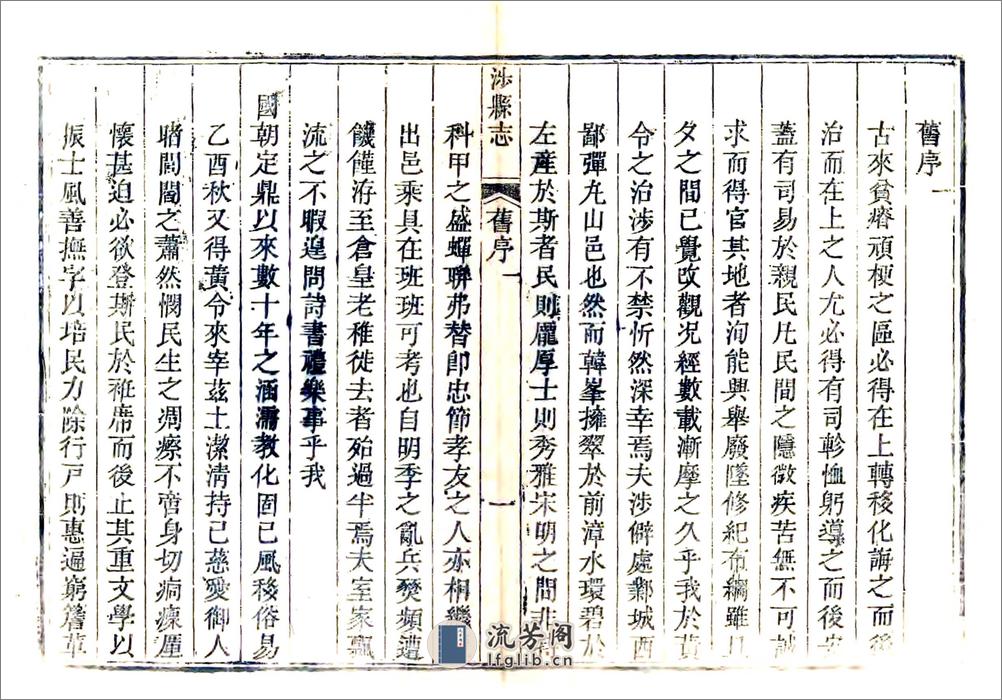 舊序
古來貧瘠頑梗之區必得在上轉移化誨之而後
治而在上之人尤必得有司軫恤躬導之而後安
蓋有司易於親民凡民間之隱微疾苦無不可誠
求而得官其地者洵能興舉廢墜修紀布綱雖旦
夕之間已覺改觀况經數載漸摩之久乎我於黃
令之治涉有不禁忻然深幸焉夫涉僻處鄴城西
鄙彈丸山邑也然而韓峯擁翠於前漳水環碧於
左産於斯者民則龎厚士則秀雅宋明之間非
科甲之盛蟬聯弗替卽忠節孝友之人亦相繼
出邑乘具在班班可考也自明季之亂兵燹頻遭
饑饉洊至倉皇老稚徙去者殆過半焉夫室家飄
流之不暇遑問詩書禮樂事乎我
國朝定鼎以來數十年之涵濡教化固已風移俗易
乙酉秋又得黃令來宰茲土潔清持己慈愛御人
睹閭閻之蕭然憫民生之凋瘵不啻身切痌瘝厪
懷甚迫必欲登斯民於袵席而後止其重文學以
振士風善撫字以培民力除行戸則惠遍窮簷革
涉縣志
舊序
一
流芳阁
lfglib.cn